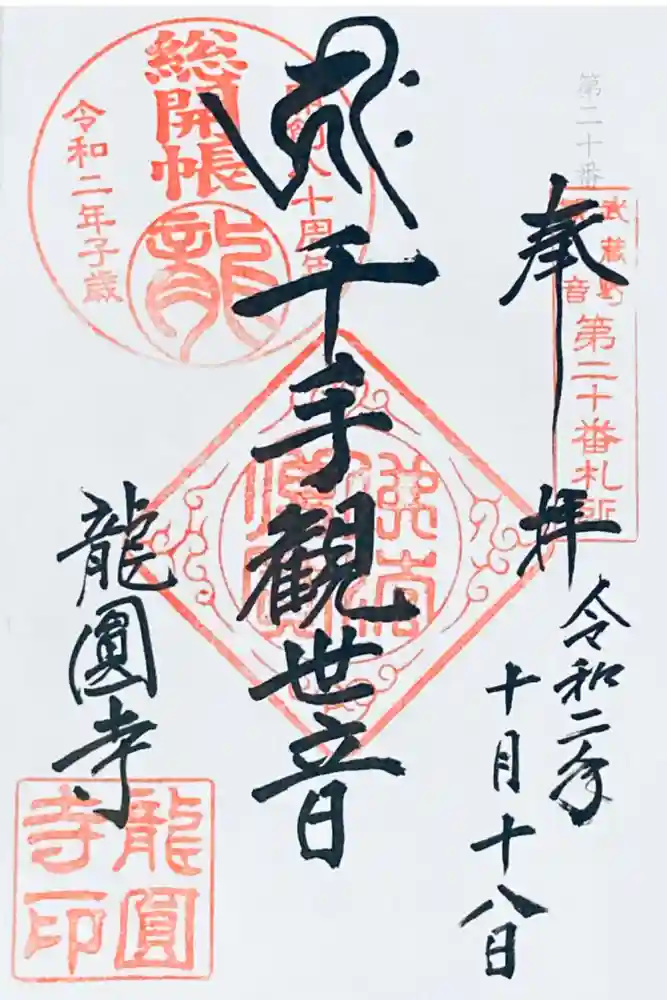 第二十番
武蔵野
観音
第二十番札所
奉拝
令和二年
十月十八日
開創八十周年
総開帳
龍
令和二年子歳
千手観世音
龍圓寺
龍圓
寺印